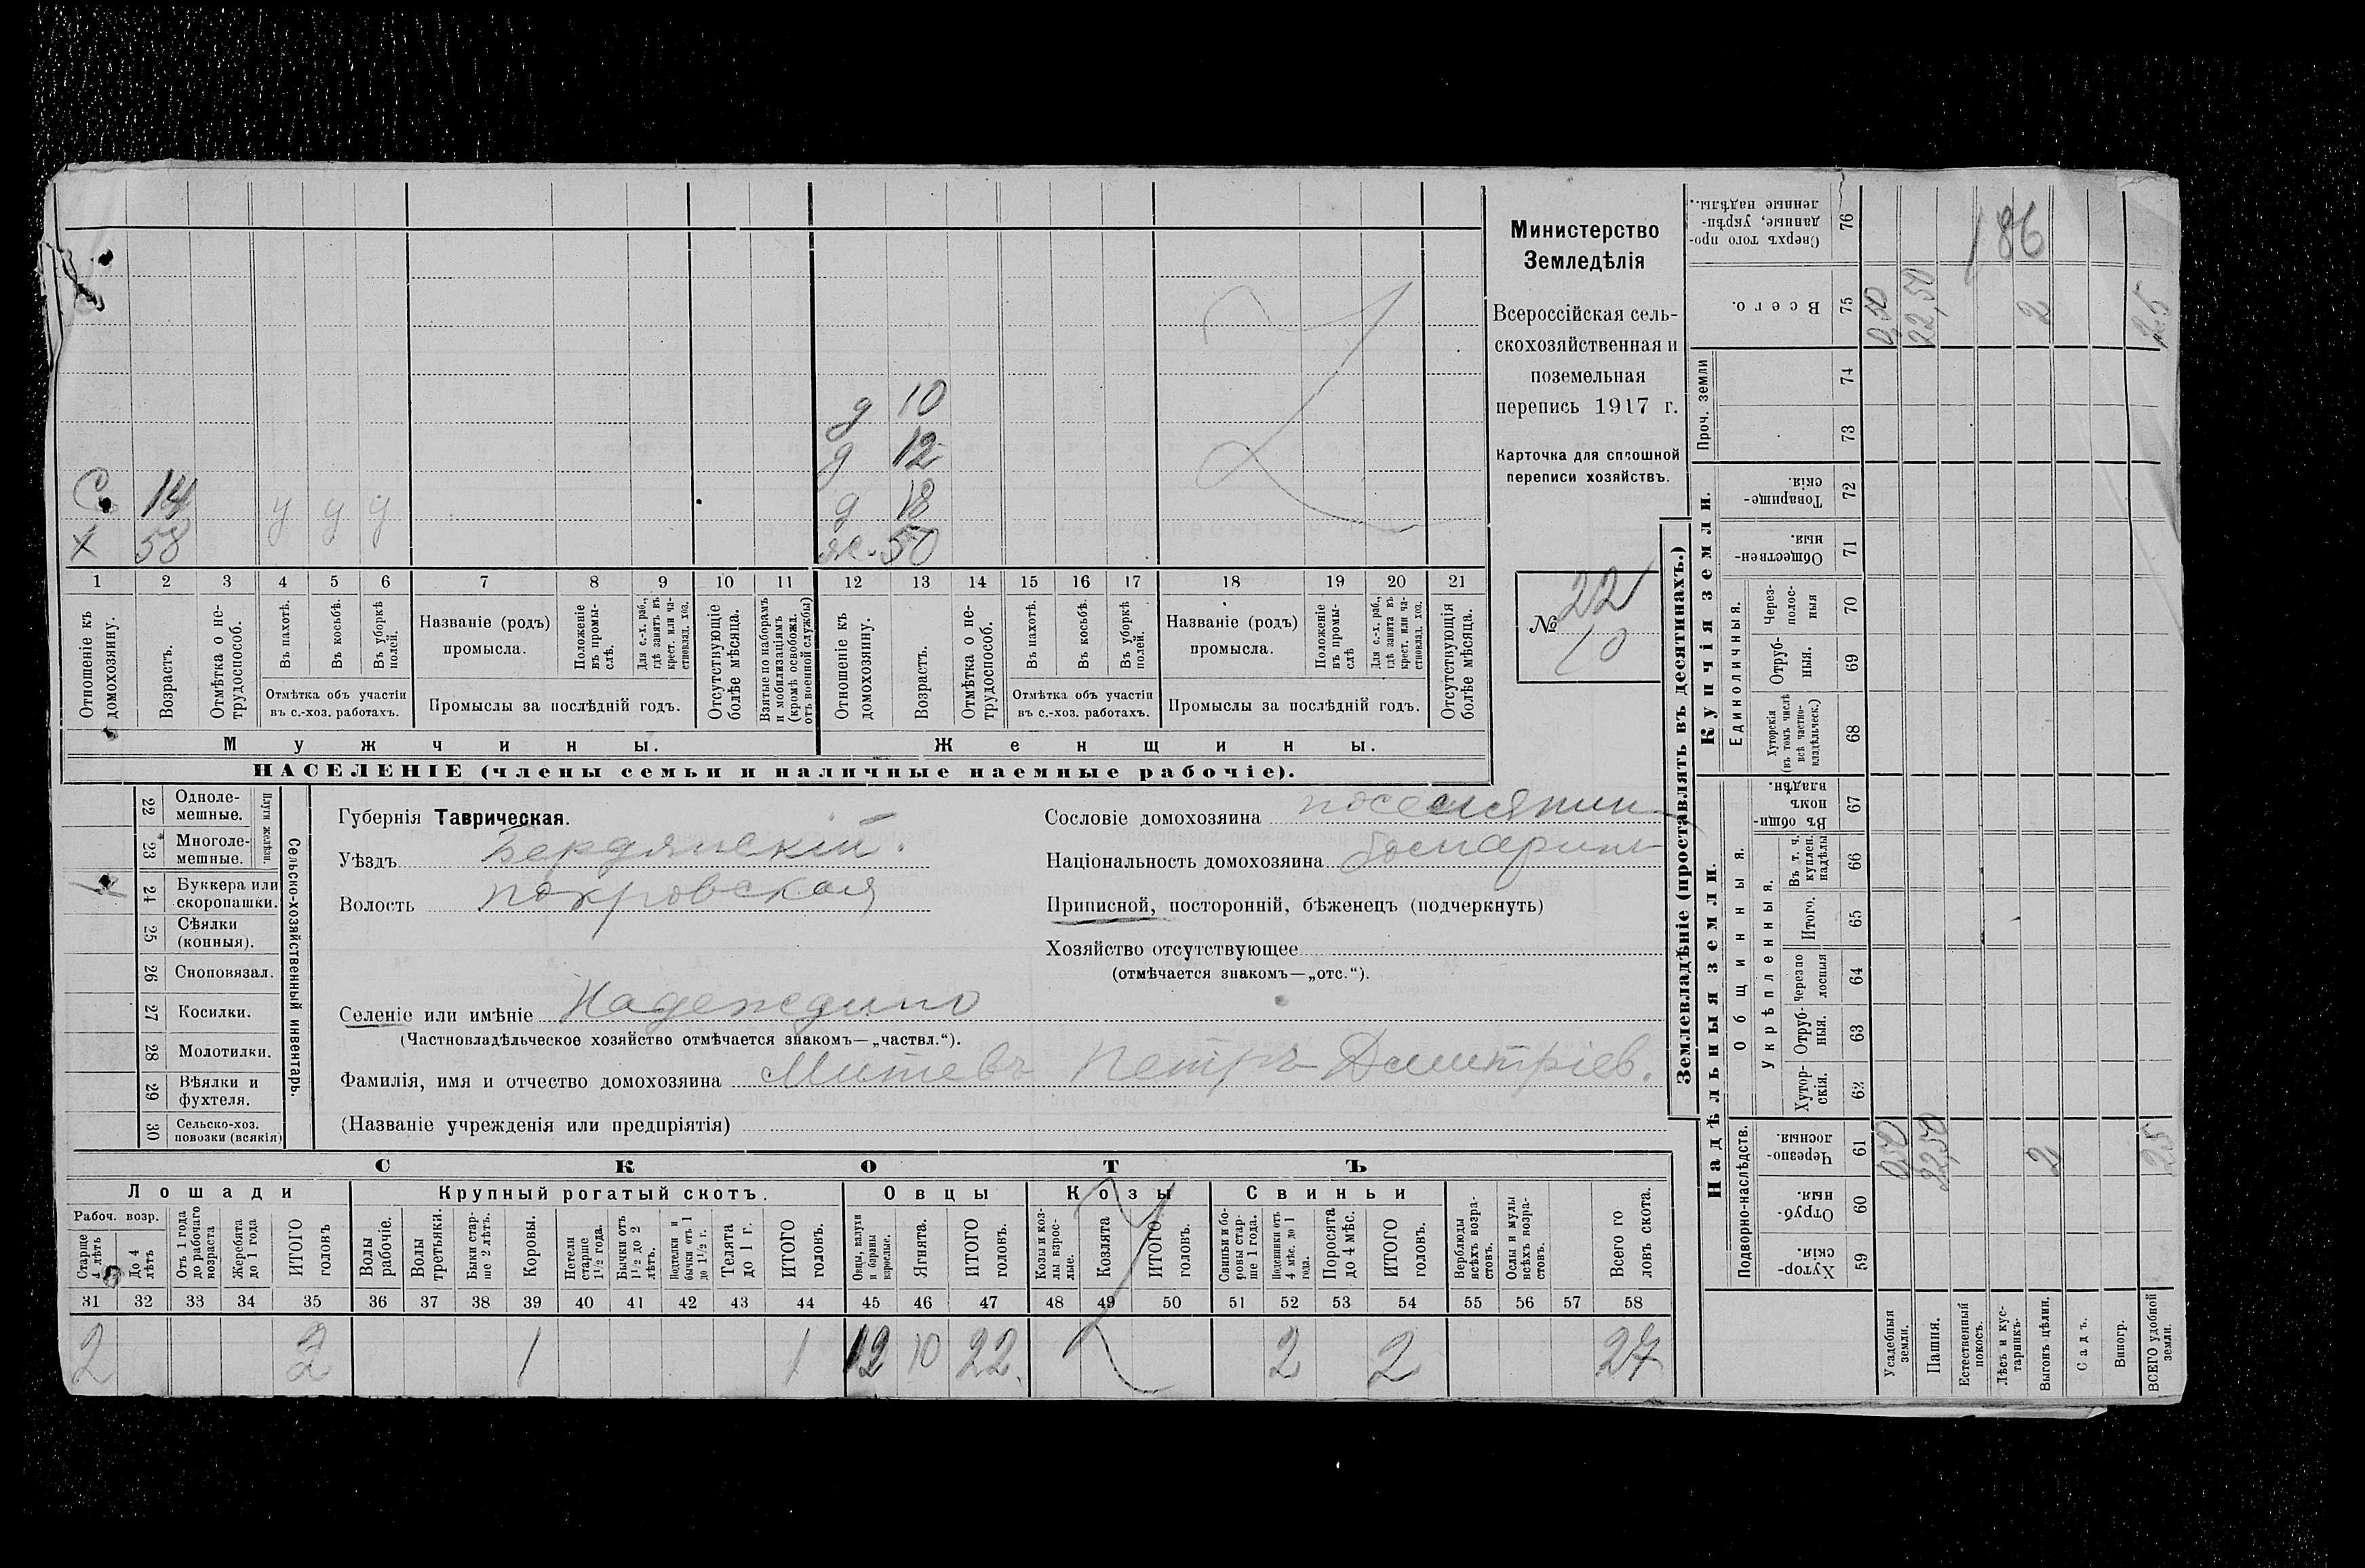 Министерство
Земледѣлія
Всероссійская сель-
скохозяйственная и
поземельная
перепись 1917 г.
Карточка для сплошной
переписи хозяйствъ.
№ 22
10
д 10
д 12
С 14
д 18
х 58 у у у
ж. 50
1 2 3 4 5 6 7 8 9 10 11 12 13 14 15 16 17 18 19 20 21
Отношеніе къ домохозяину.
Возрастъ.
Отмѣтка о не-трудоспособ.
Въ пахотѣ.
Въ косьбѣ.
Въ уборкѣ полей.
Отмѣтка объ участіи
въ с.-хоз. работахъ.
Названіе (родъ)
промысла.
Положеніе въ промы-слѣ.
Для с.-х. раб., гдѣ занятъ въ крест. или ча-стновлад. хоз.
Промыслы за послѣдній годъ.
Отсутствующіе болѣе мѣсяца.
Взятые по наборамъ и мобилизаціямъ (кромѣ освобожд. отъ военной службы)
Отношеніе къ домохозяину.
Возрастъ.
Отмѣтка о не-трудоспособ.
Въ пахотѣ.
Въ косьбѣ.
Въ уборкѣ полей.
Отмѣтка объ участіи
въ с.-хоз. работахъ.
Названіе (родъ)
промысла.
Положеніе въ промы-слѣ
Для с.-х. раб., гдѣ занята въ крест. или ча-стновлад. хоз.
Промыслы за послѣдній годъ.
Отсутствующія болѣе мѣсяца.
Мужчины.
Женщины.
НАСЕЛЕНІЕ (члены семьи и наличные наемные рабочіе).
Сельско-хозяйственный инвентарь.
Плуги желѣзн.
22 Одноле-мешные.
23 Многоле-мешные.
24 Буккера или скоропашки.
25 Сѣялки (конныя).
26 Сноповязал.
27 Косилки.
28 Молотилки.
29 Вѣялки и фухтеля.
30 Сельско-хоз. повозки (всякія)
Губернія Таврическая.
Уѣздъ Бердянскій.
Волость покровская
Сословіе домохозяина поселянин
Національность домохозяина болгаринъ
Приписной, посторонній, бѣженецъ (подчеркнуть)
Хозяйство отсутствующее
(отмѣчается знакомъ—„отс.“).
Селеніе или имѣніе Надеждино
(Частновладѣльческое хозяйство отмѣчается знакомъ—„частвл.“).
Фамилія, имя и отчество домохозяина Митевъ Петръ Дмитріев.
(Названіе учрежденія или предпріятія)
СКОТЪ
Лошади
Крупный рогатый скотъ.
Овцы
Козы
Свиньи
Рабоч. возр.
Старше 4 лѣтъ
До 4 лѣтъ
Отъ 1 года до рабочаго возраста
Жеребята до 1 года
ИТОГО головъ
Волы рабочіе.
Волы третьяки.
Быки стар-ше 2 лѣтъ.
Коровы.
Нетели старше 1 1/2 года.
Бычки отъ 1 1/2 до 2 лѣтъ.
Подтелки и бычки отъ 1 до 1 1/2 г.
Телята до 1 г.
ИТОГО головъ.
Овцы, валухи и бараны взрослые.
Ягнята.
ИТОГО головъ.
Козы и коз-лы взрос-лые.
Козлята
ИТОГО головъ.
Свиньи и бо-ровы стар-ше 1 года.
Подсвинки отъ 4 мѣс. до 1 года.
Поросята до 4 мѣс.
ИТОГО головъ.
Верблюды всѣхъ возра-стовъ.
Ослы и мулы всѣхъ возра-стовъ.
Всего го ловъ скота.
31 32 33 34 35 36 37 38 39 40 41 42 43 44 45 46 47 48 49 50 51 52 53 54 55 56 57 58
2 2 1 1 12 10 22 2 2 27
Землевладѣніе (проставлять въ десятинахъ.)
Купчія земли.
Надѣльныя земли.
Проч. земли
Единоличныя.
Общинныя.
Укрѣпленныя.
Подворно-наслѣдств.
Сверхъ того про-данные, укрѣп-ленные надѣлы. 76
Всего. 75 0,50 22,50 2 25
186
74
73
Товарище-скія. 72
Обществен-ныя. 71
Через-полос-ныя 70
Отруб-ныя. 69
Хуторскія (въ томъ числѣ всѣ частно-владѣльческ.) 68
Въ общин-номъ владѣн. 67
Въ т. ч. куплен. надѣлы 66
Итого. 65
Черезпо лосныя 64
Отруб-ныя. 63
Хутор-скія. 62
Черезпо-лосныя. 61 0,50 22,50 2 25
Отруб-ныя. 60
Хутор-скія. 59
Усадебныя земли.
Пашня.
Естественный покосъ.
Лѣсъ и кус-тарникъ.
Выгонъ цѣлин.
Садъ.
Виногр.
ВСЕГО удобной земли.